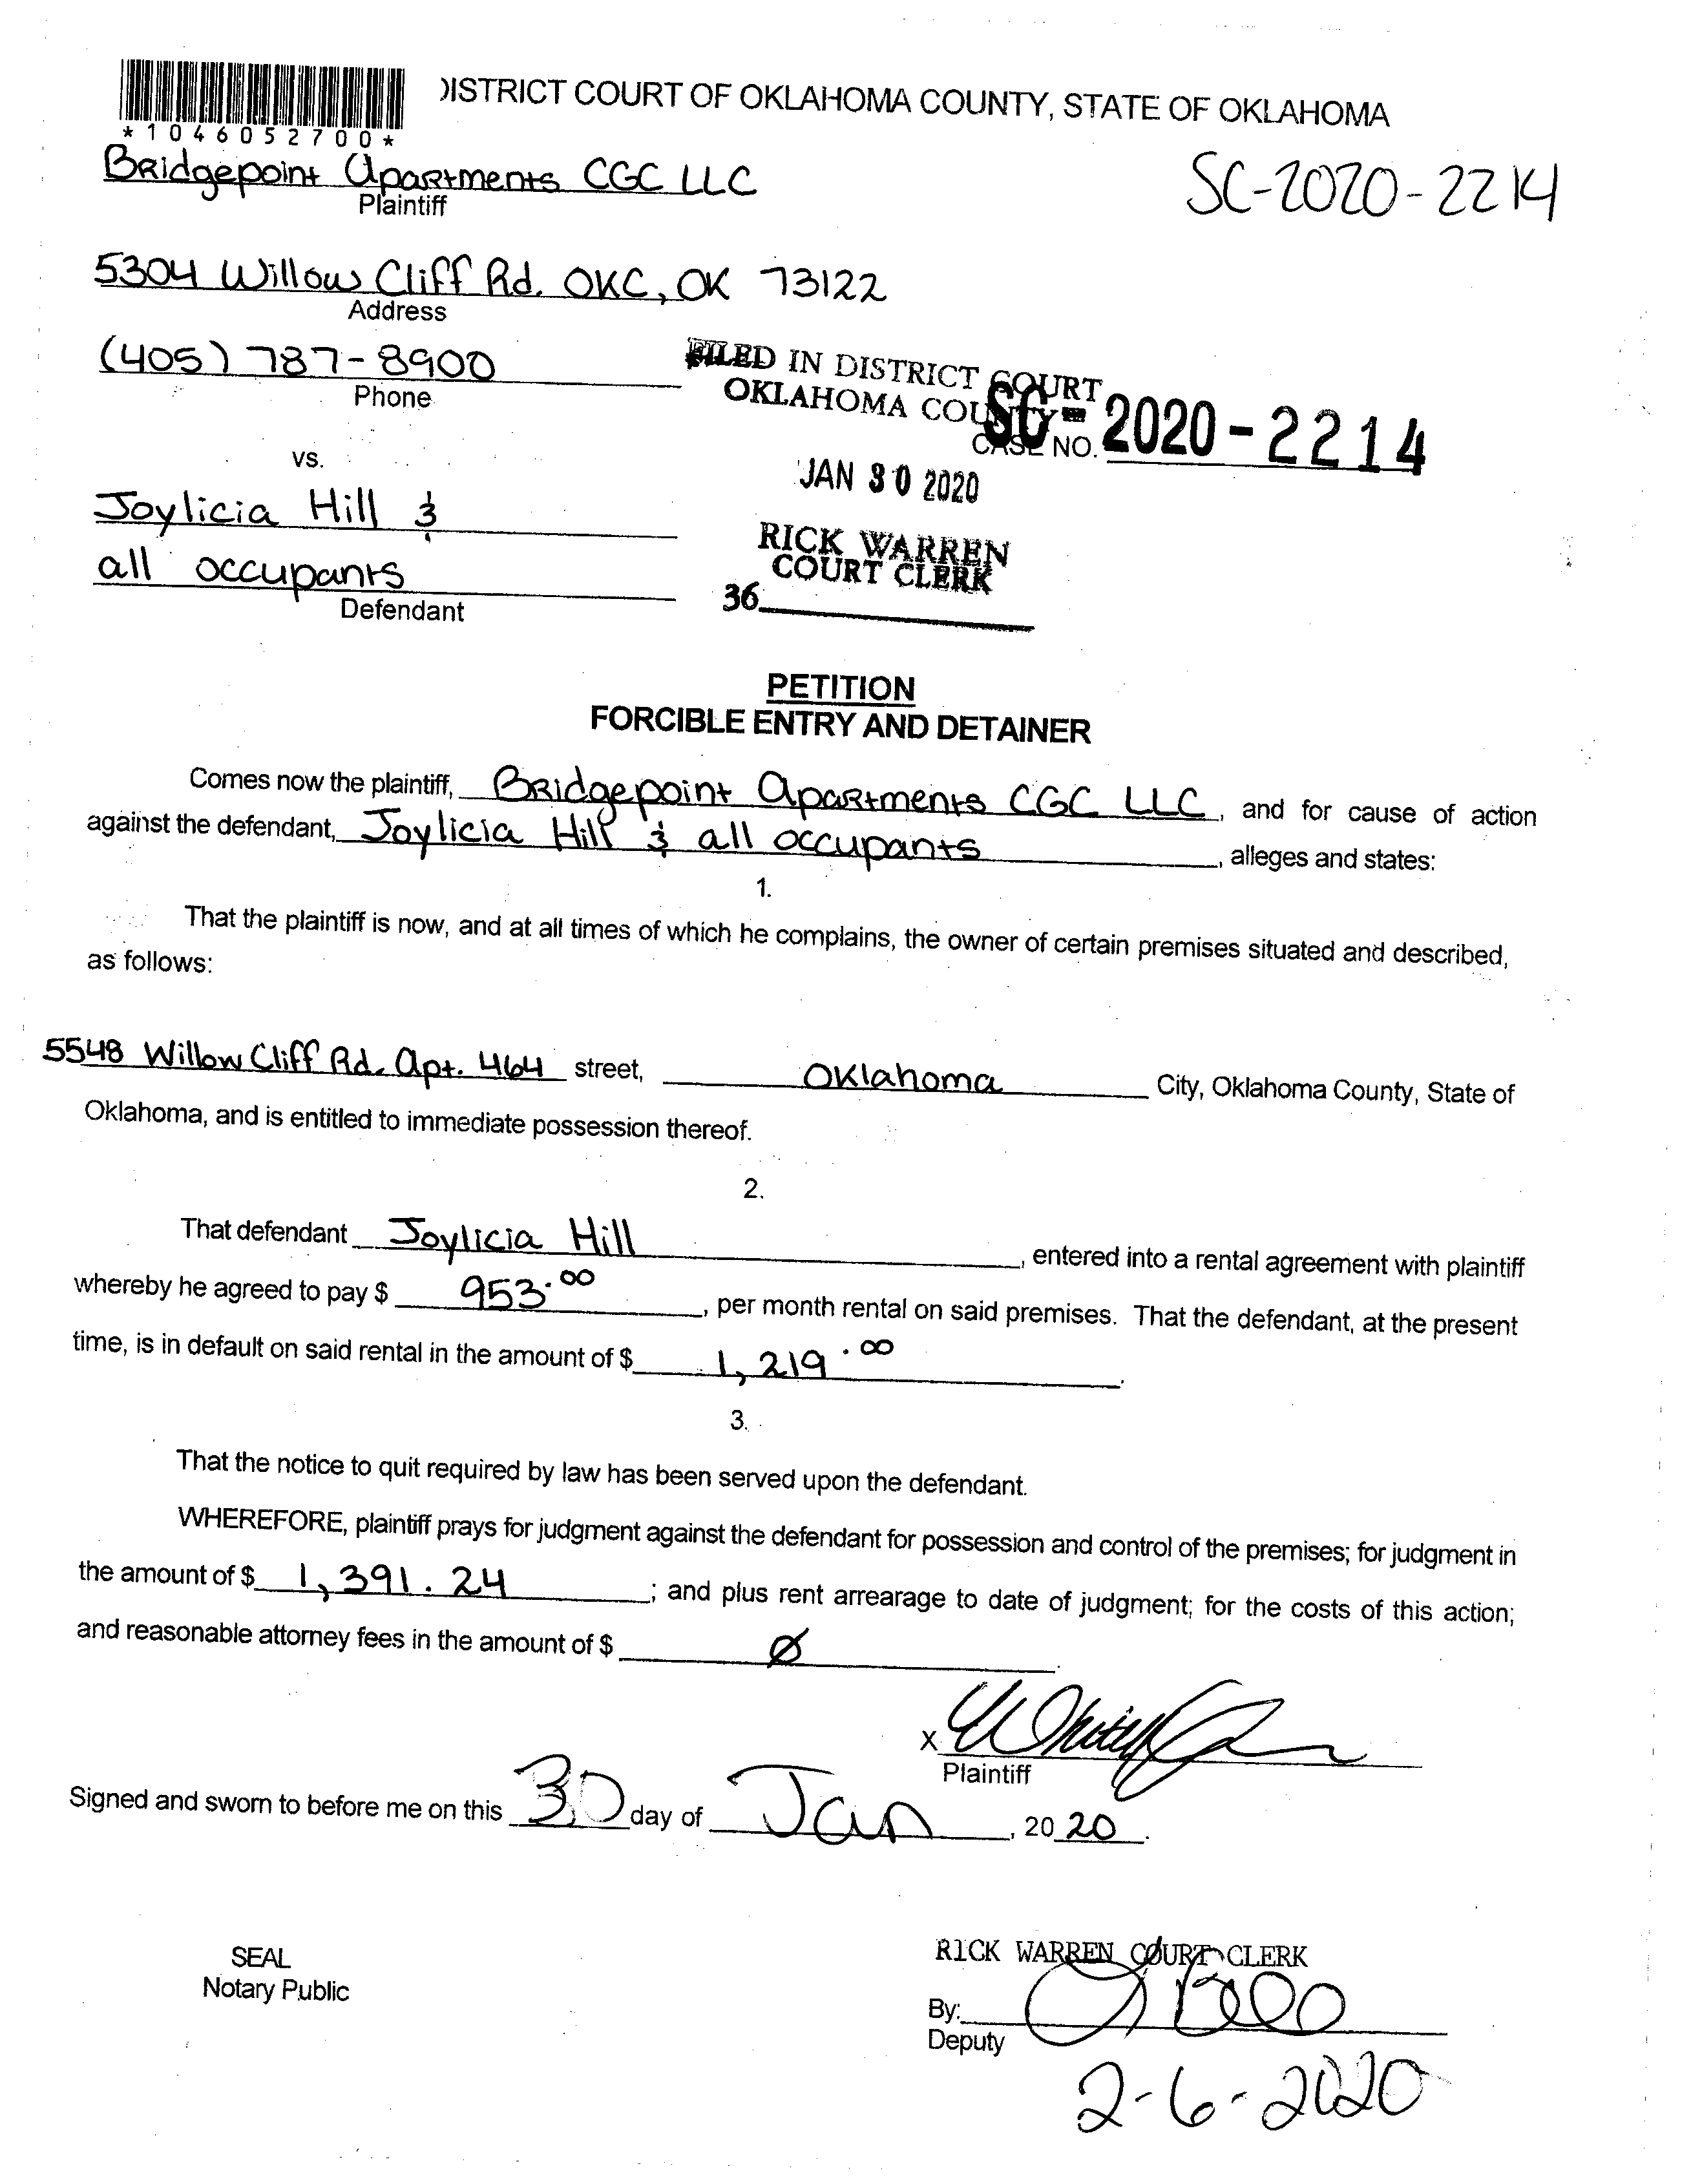 DISTRICT COURT OF OKLAHOMA COUNTY, STATE OF OKLAHOMA
*1046052700*
Bridgepoint Apartments CGC LLC
Plaintiff
SC-2020-2214
5304 Willow Cliff Rd. OKC, OK 73122
Address
(405) 787-8900
Phone
FILED IN DISTRICT COURT
OKLAHOMA COUNTY
CASE NO. SC-2020-2214
vs.
JAN 30 2020
Joylicia Hill &
all occupants
Defendant
RICK WARREN
COURT CLERK
36
PETITION
FORCIBLE ENTRY AND DETAINER
Comes now the plaintiff, Bridgepoint Apartments CGC LLC, and for cause of action
against the defendant, Joylicia Hill & all occupants, alleges and states:
1.
That the plaintiff is now, and at all times of which he complains, the owner of certain premises situated and described,
as follows:
5548 Willow Cliff Rd. Apt. 464 street, Oklahoma City, Oklahoma County, State of
Oklahoma, and is entitled to immediate possession thereof.
2.
That defendant Joylicia Hill, entered into a rental agreement with plaintiff
whereby he agreed to pay $ 953.00, per month rental on said premises. That the defendant, at the present
time, is in default on said rental in the amount of $ 1,219.00.
3.
That the notice to quit required by law has been served upon the defendant.
WHEREFORE, plaintiff prays for judgment against the defendant for possession and control of the premises; for judgment in
the amount of $ 1,391.24; and plus rent arrearage to date of judgment; for the costs of this action;
and reasonable attorney fees in the amount of $ Ø.
X
Plaintiff
Signed and sworn to before me on this 30 day of Jan, 2020.
SEAL
Notary Public
RICK WARREN COURT CLERK
By:
Deputy
2-6-2020